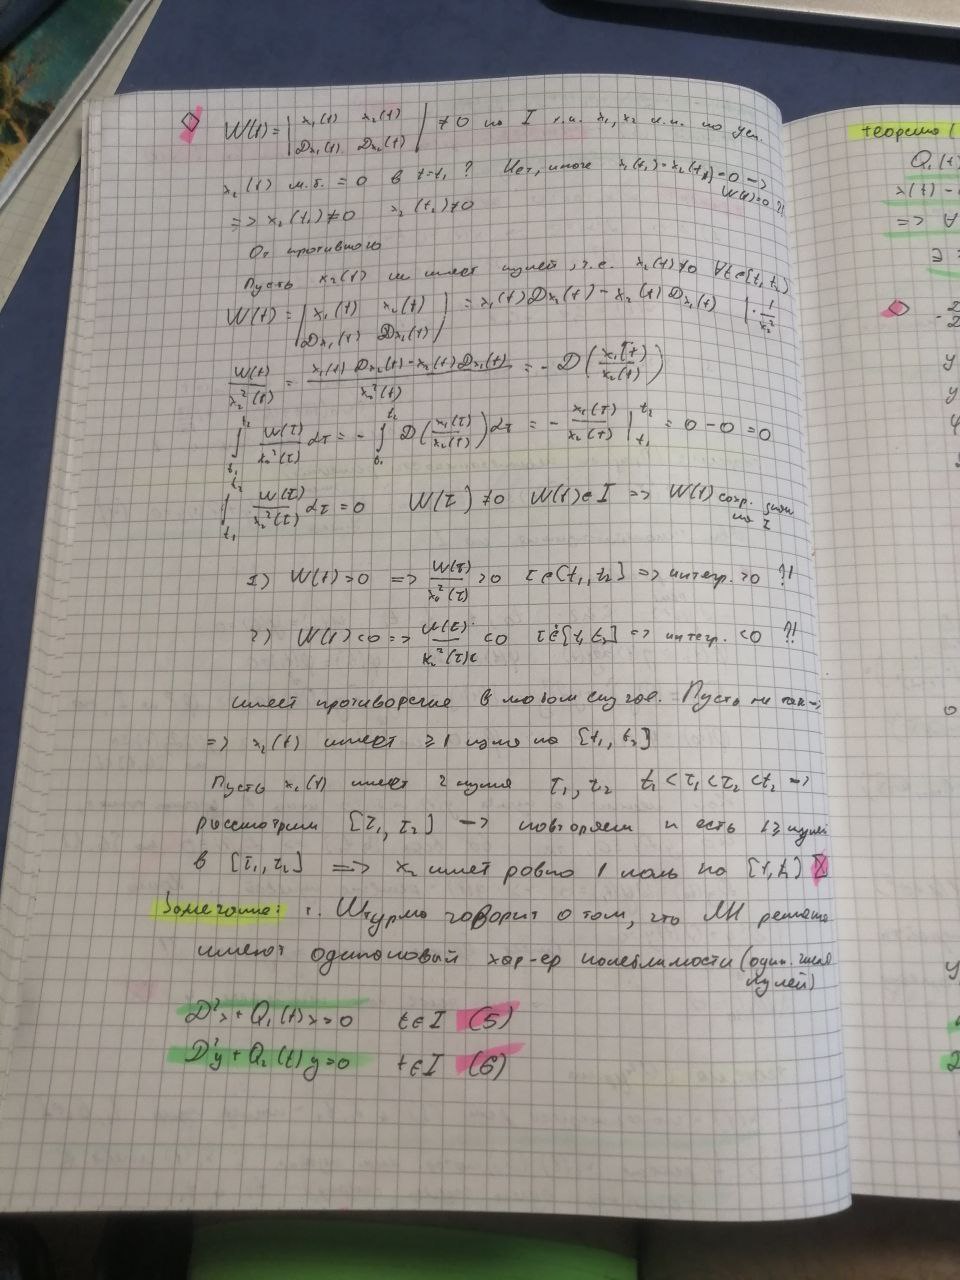 W(t) = | x₁(t) x₂(t) | ≠ 0 на I т.к. x₁, x₂ л.н. по усл.
| Dx₁(t) Dx₂(t) |
x₂(t) м.б. = 0 в t=t₁ ? Нет, иначе x₁(t₁) = x₂(t₁) = 0 →
W(t)=0 ?!
=> x₂(t₁) ≠ 0 x₂(t₂) ≠ 0
От противного
Пусть x₂(t) не имеет нулей, т.е. x₂(t) ≠ 0 ∀t∈[t₁, t₂]
W(t) = | x₁(t) x₂(t) | = x₁(t) Dx₂(t) − x₂(t) Dx₁(t) | · 1/x₂²
| Dx₁(t) Dx₂(t) |
W(t)/x₂²(t) = (x₁(t) Dx₂(t) − x₂(t) Dx₁(t))/x₂²(t) = − D(x₁(t)/x₂(t))
∫_{t₁}^{t₂} W(τ)/x₂²(τ) dτ = − ∫_{t₁}^{t₂} D(x₁(τ)/x₂(τ)) dτ = − x₁(τ)/x₂(τ) |_{t₁}^{t₂} = 0 − 0 = 0
∫_{t₁}^{t₂} W(τ)/x₂²(τ) dτ = 0 W(τ) ≠ 0 W(t) ∈ I => W(t) сохр. знак
на I
1) W(t) > 0 => W(τ)/x₂²(τ) > 0 τ∈[t₁, t₂] => интегр. > 0 ?!
2) W(t) < 0 => W(τ)/x₂²(τ) < 0 τ∈[t₁, t₂] => интегр. < 0 ?!
имеет противоречие в любом случае. Пусть не так →
=> x₂(t) имеет ≥ 1 нуля на [t₁, t₂]
Пусть x₂(t) имеет 2 нуля τ₁, τ₂ t₁ < τ₁ < τ₂ < t₂ →
рассмотрим [τ₁, τ₂] → повторяем и есть нулей
в [τ₁, τ₂] => x₂ имеет ровно 1 ноль на [t₁, t₂]
Замечание: т. Штурма говорит о том, что ЛН решения
имеют одинаковый хар-ер колеблимости (один. числа
нулей)
D²x + Q₁(t)x = 0 t∈I (5)
D²y + Q₂(t)y = 0 t∈I (6)
теорема (
Q₁(t)
x(t) –